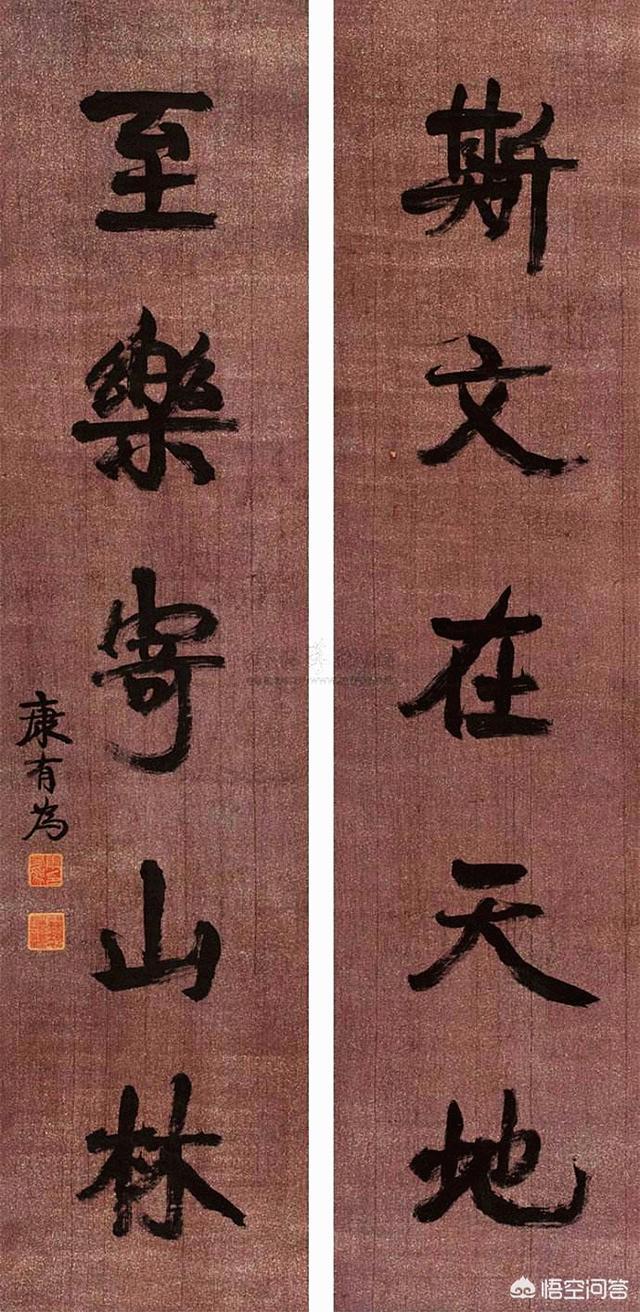 斯文在天地
至樂寄山林
康有為
悟空问答